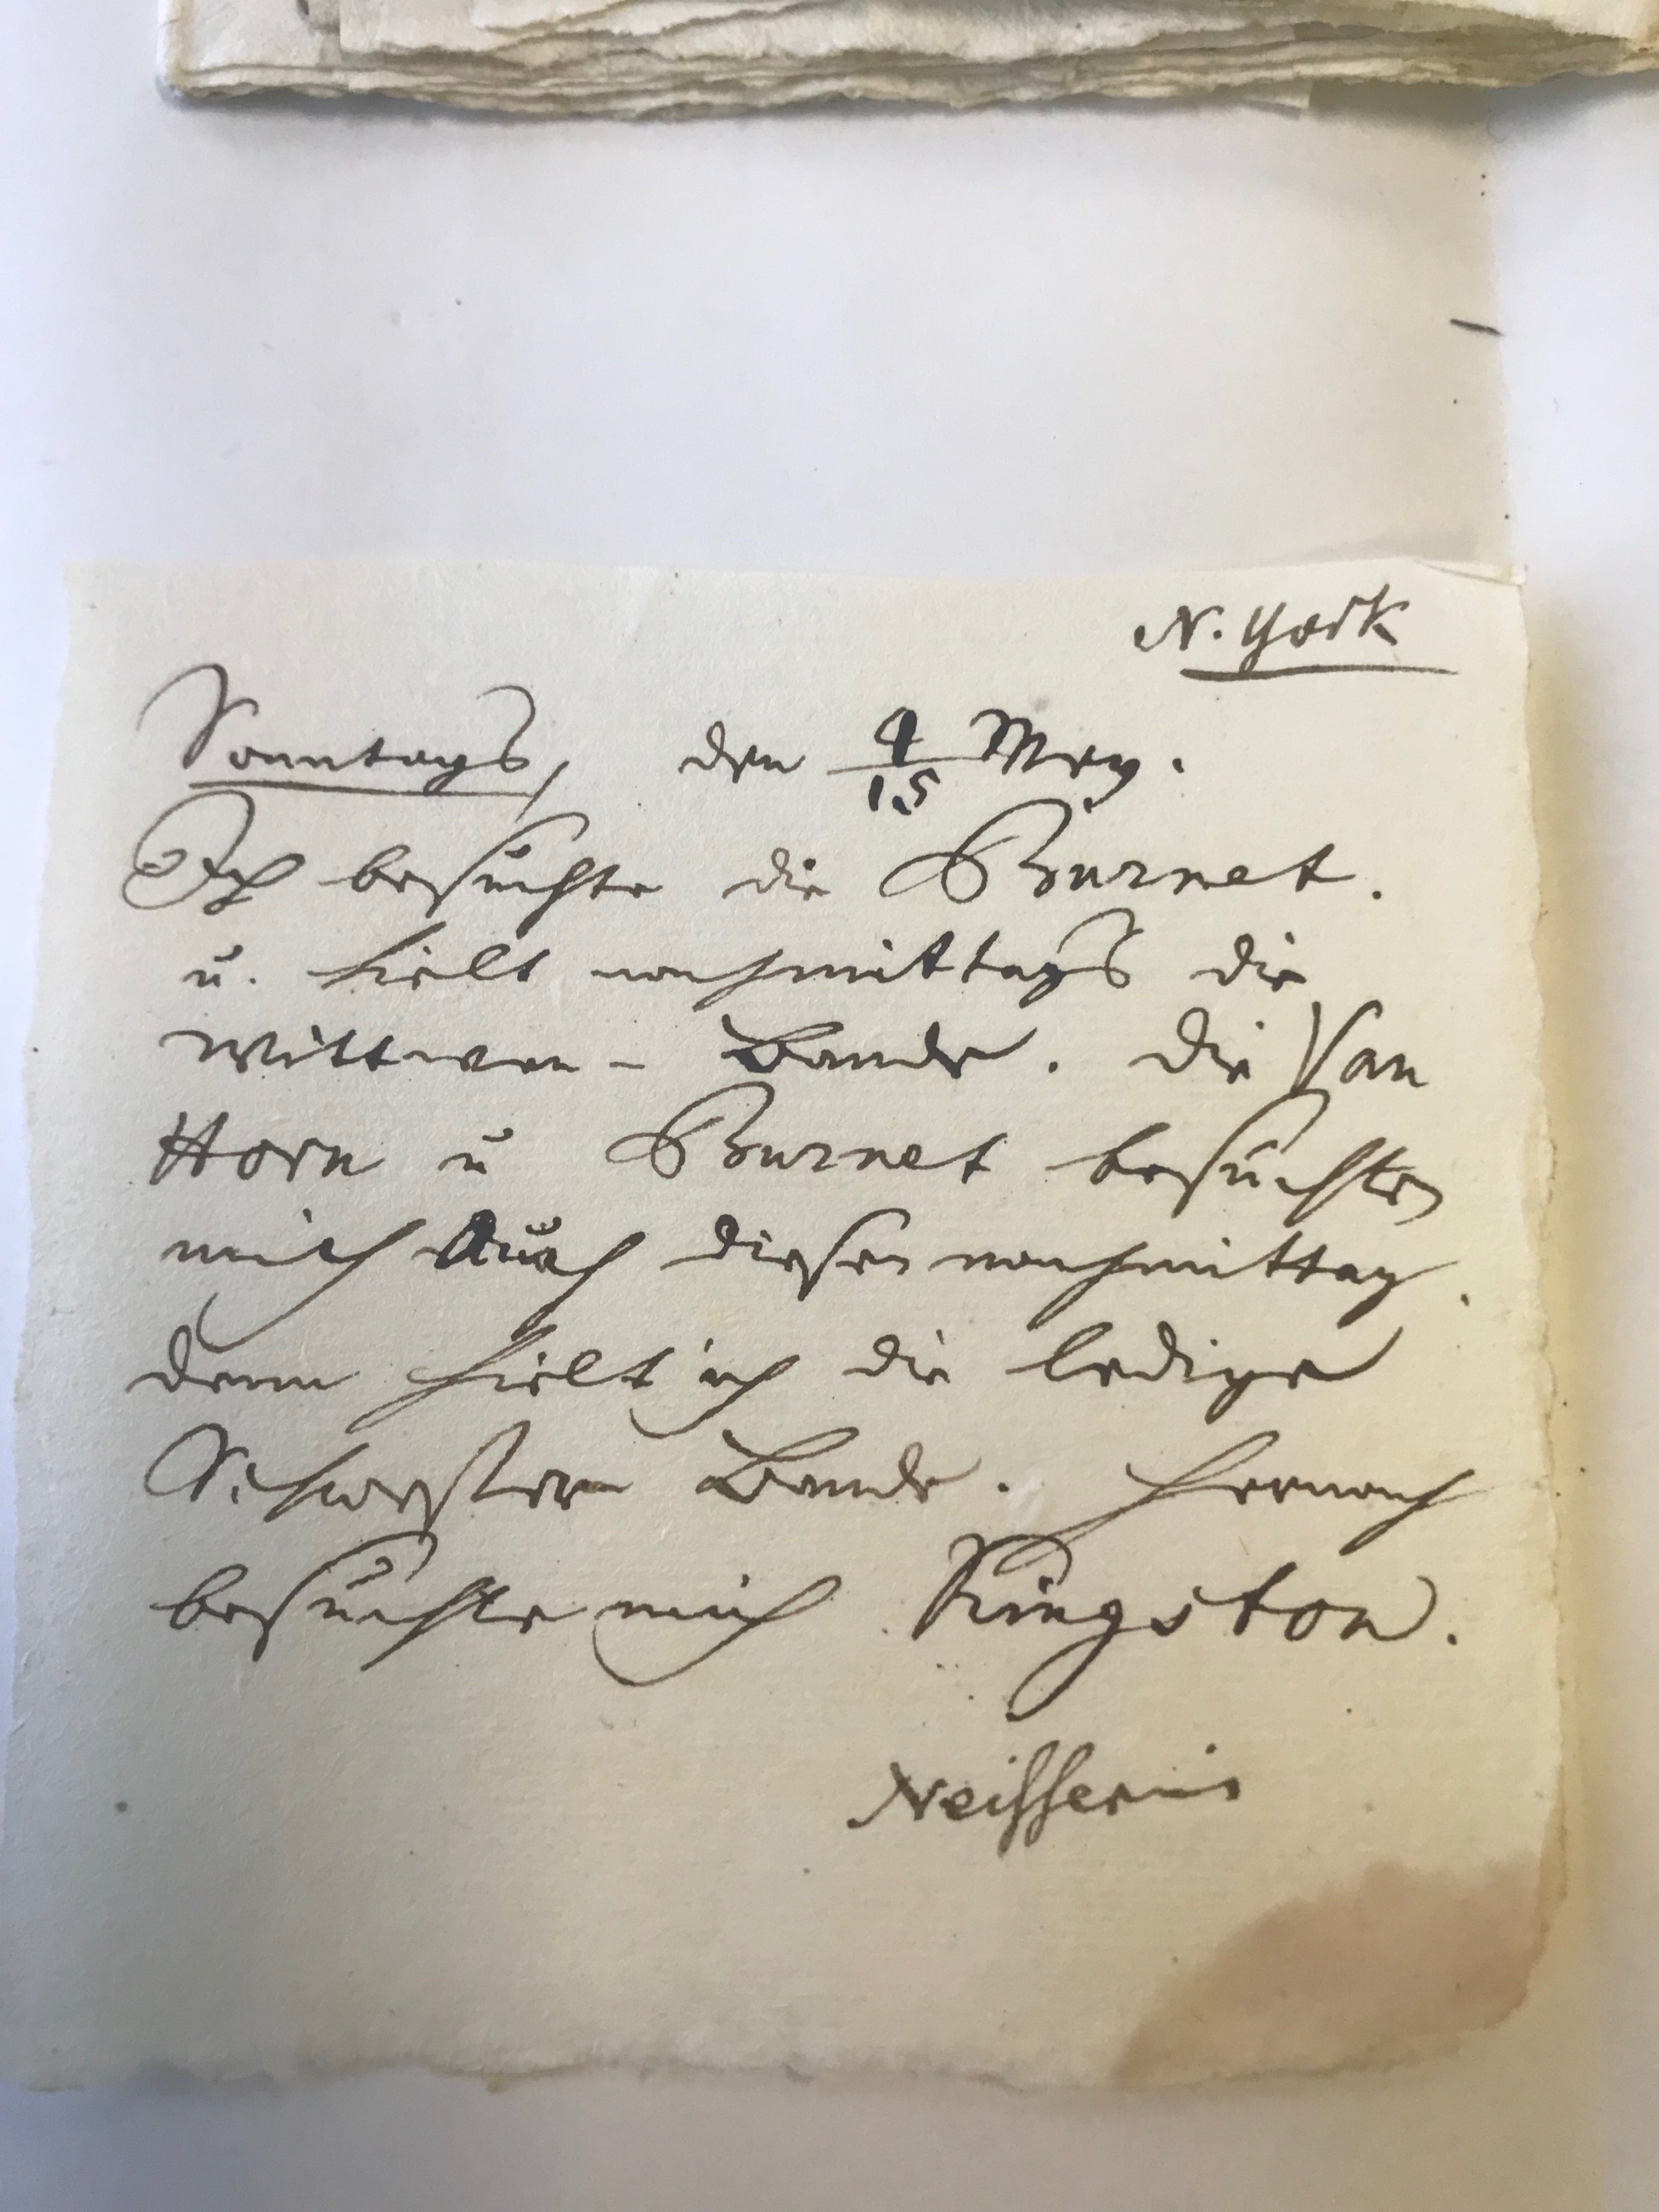 N. York
Sonntags, den 4/15 Mey.
Ich besuchte die Burnet.
u. hielt nachmittags die
Wittwen - Bande. die Van
Horn u Burnet besuchten
mich Auch diesen nachmittag.
denn hielt ich die ledige
Schwestern Bande. hernach
besuchte mich Kingston.
Neisserin